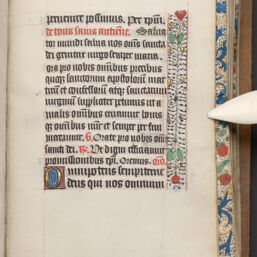 peruenire possimus. per xpm̄.
de tous sains antienne. Salua
tor mundi salua nos om̄s sancta
dei genitrix uirgo semper maria.
ora pro nobis om̄ibus precibus
quoq; sanctorum apostolorum mar
tirū et confessorū atq; sanctarum
uirginū suppliciter petimus ut a
malis om̄ibus eruamur bonis
q; om̄ibus nūc et semper per frui
mereamur. Orate pro nobis om̄s
sancti dei. Ut digni efficiamur
promissionibus xpi. Oremus.
Omnipotens sempiterne
deus qui nos omnium